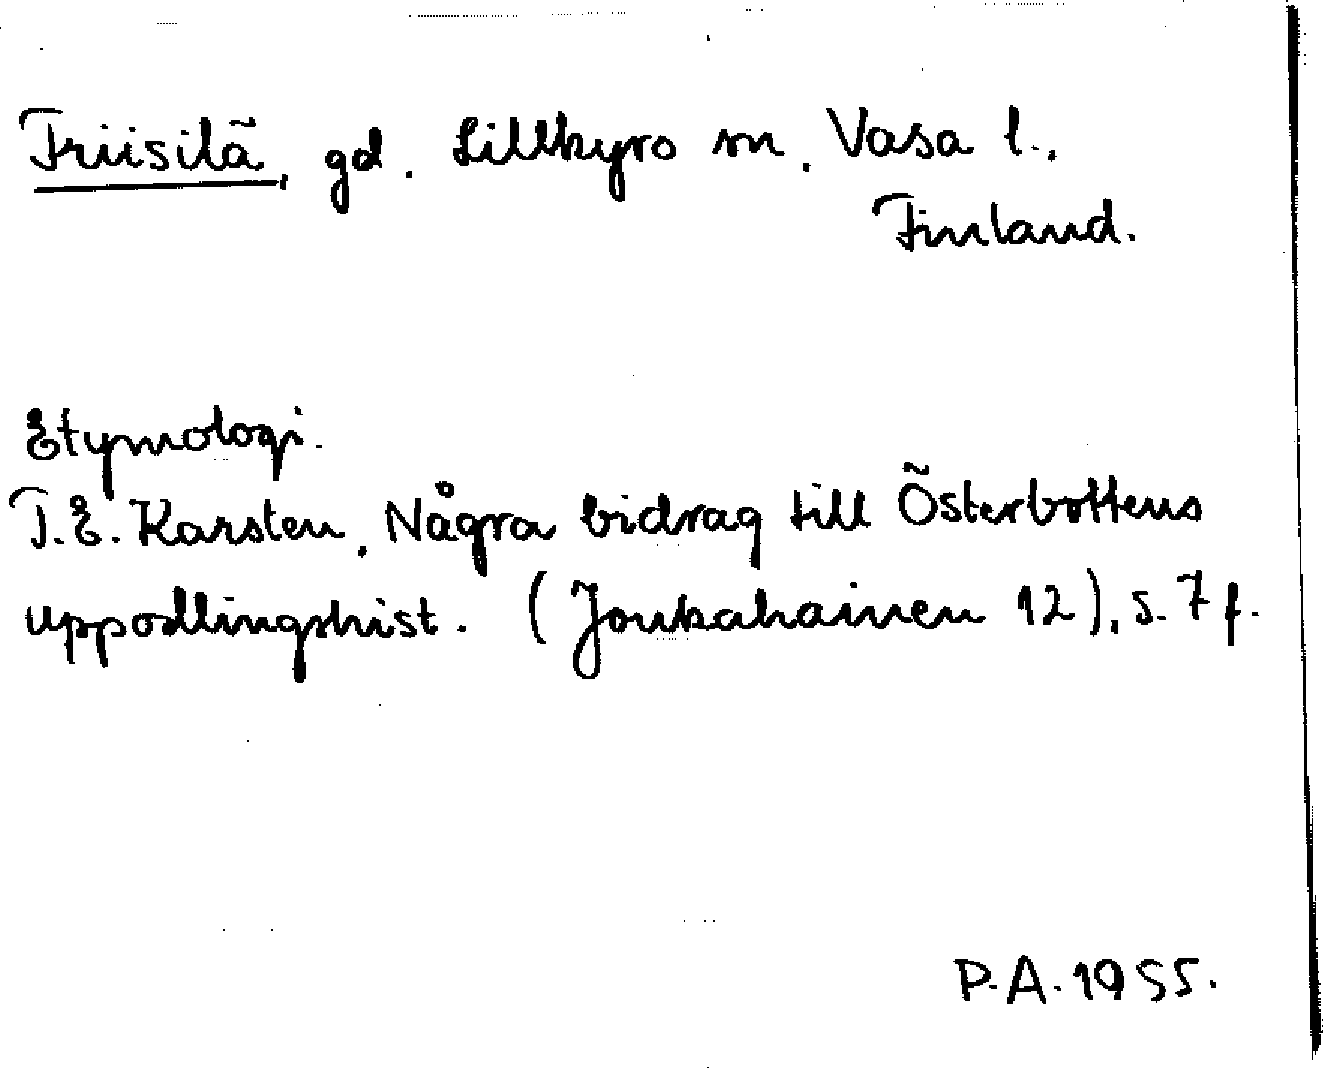 Friisilä, gd. Lillkyro sn. Vasa l.,
Finland.
Etymologi.
T.E. Karsten, Några bidrag till Österbottens
uppodlingshist. (Joukahainen 12), s. 7 f.
P.A. 1955.